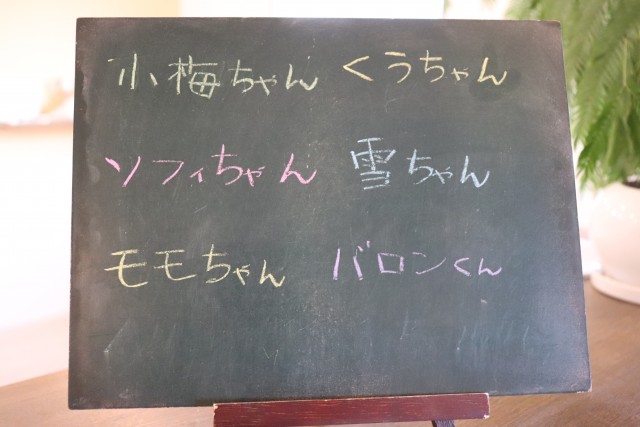 小梅ちゃん くうちゃん
ソフィちゃん 雪ちゃん
モモちゃん バロンくん